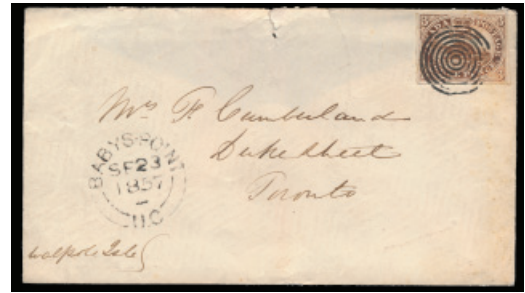 Mrs F. Cumberland
Duke Street
Toronto
BABYS-POINT
SP 23
1857
U.C
Walpole Isle